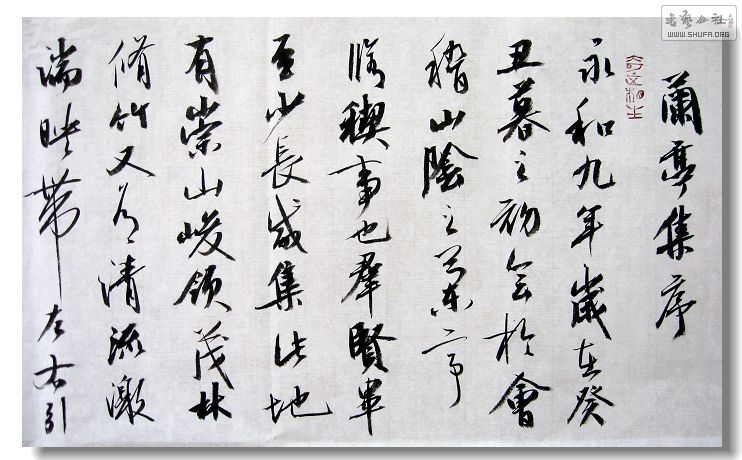 蘭亭集序
永和九年歲在癸
丑暮之初会於會
稽山陰之蘭亭
脩禊事也羣賢畢
至少長咸集此地
有崇山峻領茂林
脩竹又有清流激
湍映帶左右引
书艺公社
WWW.SHUFA.ORG